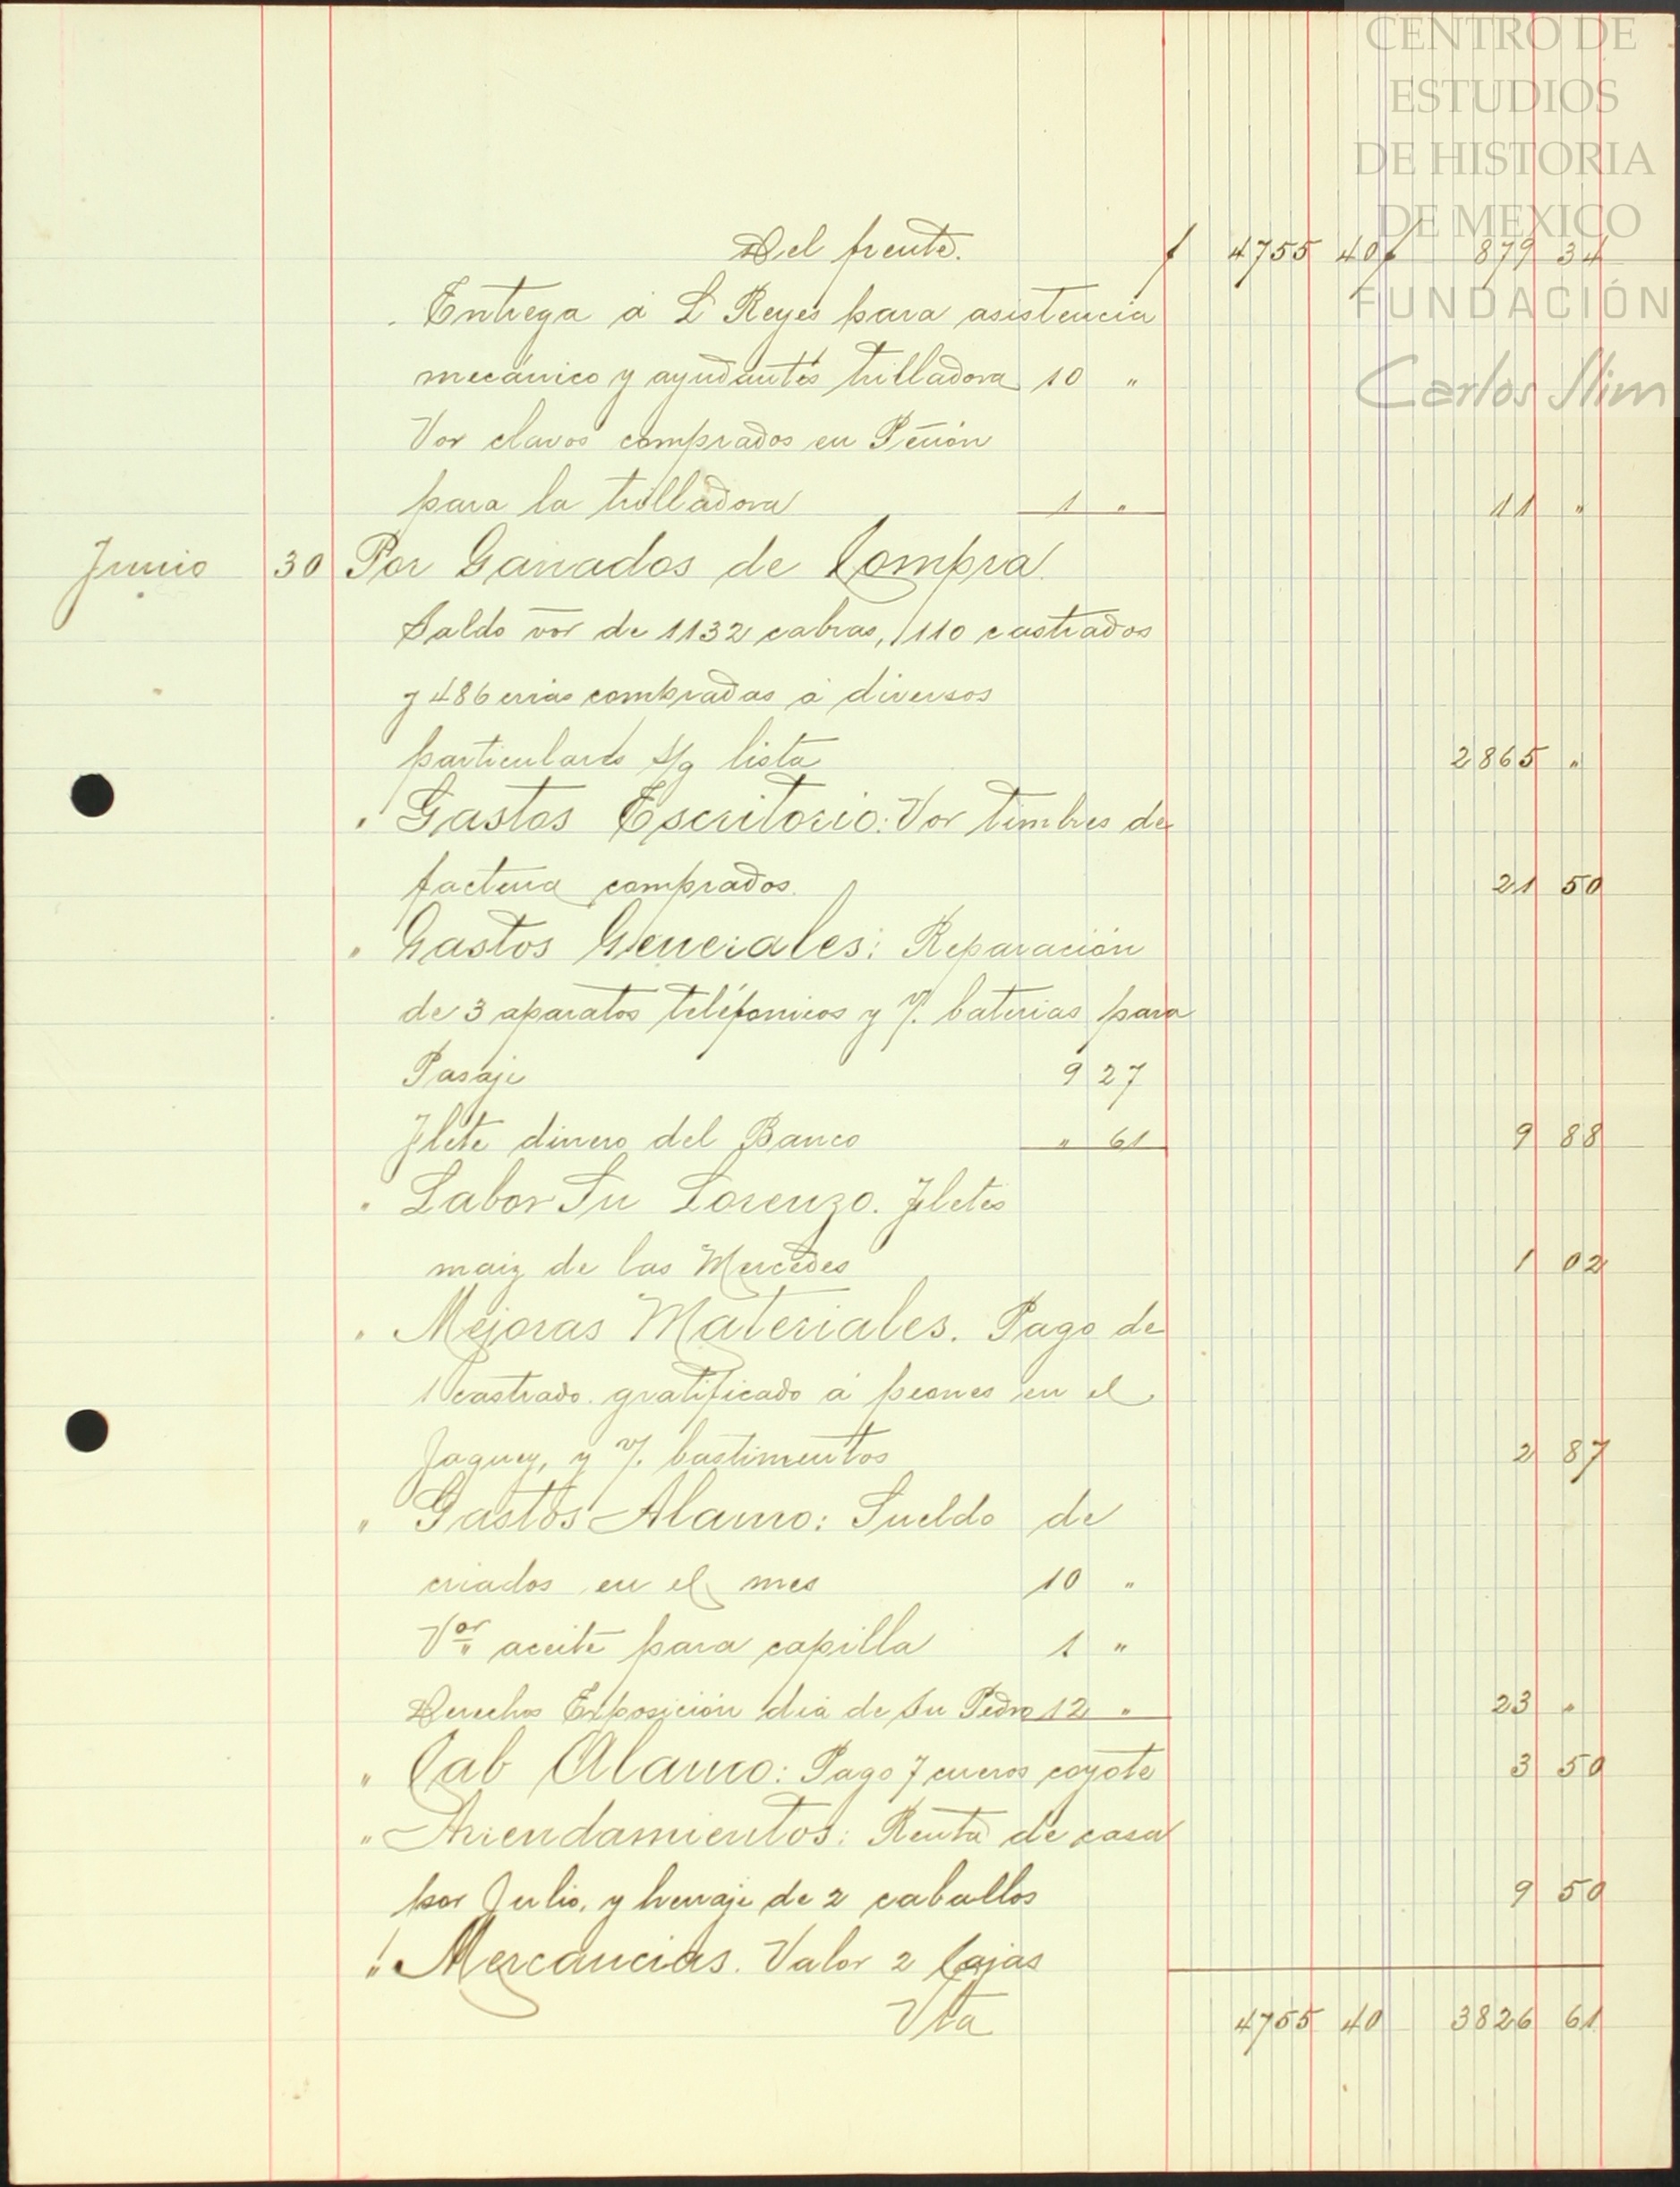 CENTRO DE
ESTUDIOS
DE HISTORIA
DE MEXICO
FUNDACIÓN
Carlos Slim
Del frente. $ 4755 40 $ 879 34
" Entrega á L Reyes para asistencia
mecánico y ayudantes trilladora 10 "
Vor clavos comprados en Peñón
para la trilladora 1 " 11 "
Junio 30 Por Ganados de Compra
Saldo vor de 1132 cabras, 110 castrados
y 486 crias compradas á diversos
particulares s/g lista 2865 "
" Gastos Escritorio: Vor timbres de
factura comprados. 21 50
" Gastos Generales: Reparación
de 3 aparatos teléfonicos y V. baterias para
Pasaje 9 27
Flete dinero del Banco " 61 9 88
" Labor Sn Lorenzo. Fletes
maiz de las Mercedes 1 02
" Mejoras Materiales. Pago de
1 castrado gratificado á peones en el
Jaguey, y V. bastimentos 2 87
" Gastos Alamo: Sueldo de
criados en el mes 10 "
Vor aceite para capilla 1 "
Derechos Exposición dia de Sn Pedro 12 " 23 "
" Cab Alamo: Pago 7 cueros coyote 3 50
" Arrendamientos: Renta de casa
por Julio, y herraje de 2 caballos 9 50
" Mercancias. Valor 2 Cajas
Vta 4755 40 3826 61